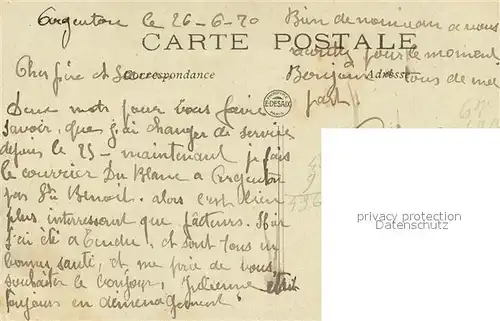 Argenton le 26-6-20
CARTE POSTALE
Correspondance
Adresse
Cher frère et Soeur
Deux mots pour vous faire
savoir, que j'ai changer de service
depuis le 25 - maintenant je fais
le courrier Du Blanc a Argenton
par St Benoit. alors c'est bien
plus interressent que facteurs. Hier
j'ai été a Tendu, et sont tous en
bonne santé, et me prie de vous
souhaiter le bonjour, Julienne était
toujours en déménagement
Rien de nouveau a vous
pour le moment
Bonjour a tous de ma
part.
E. DESAIX
privacy protection
Datenschutz